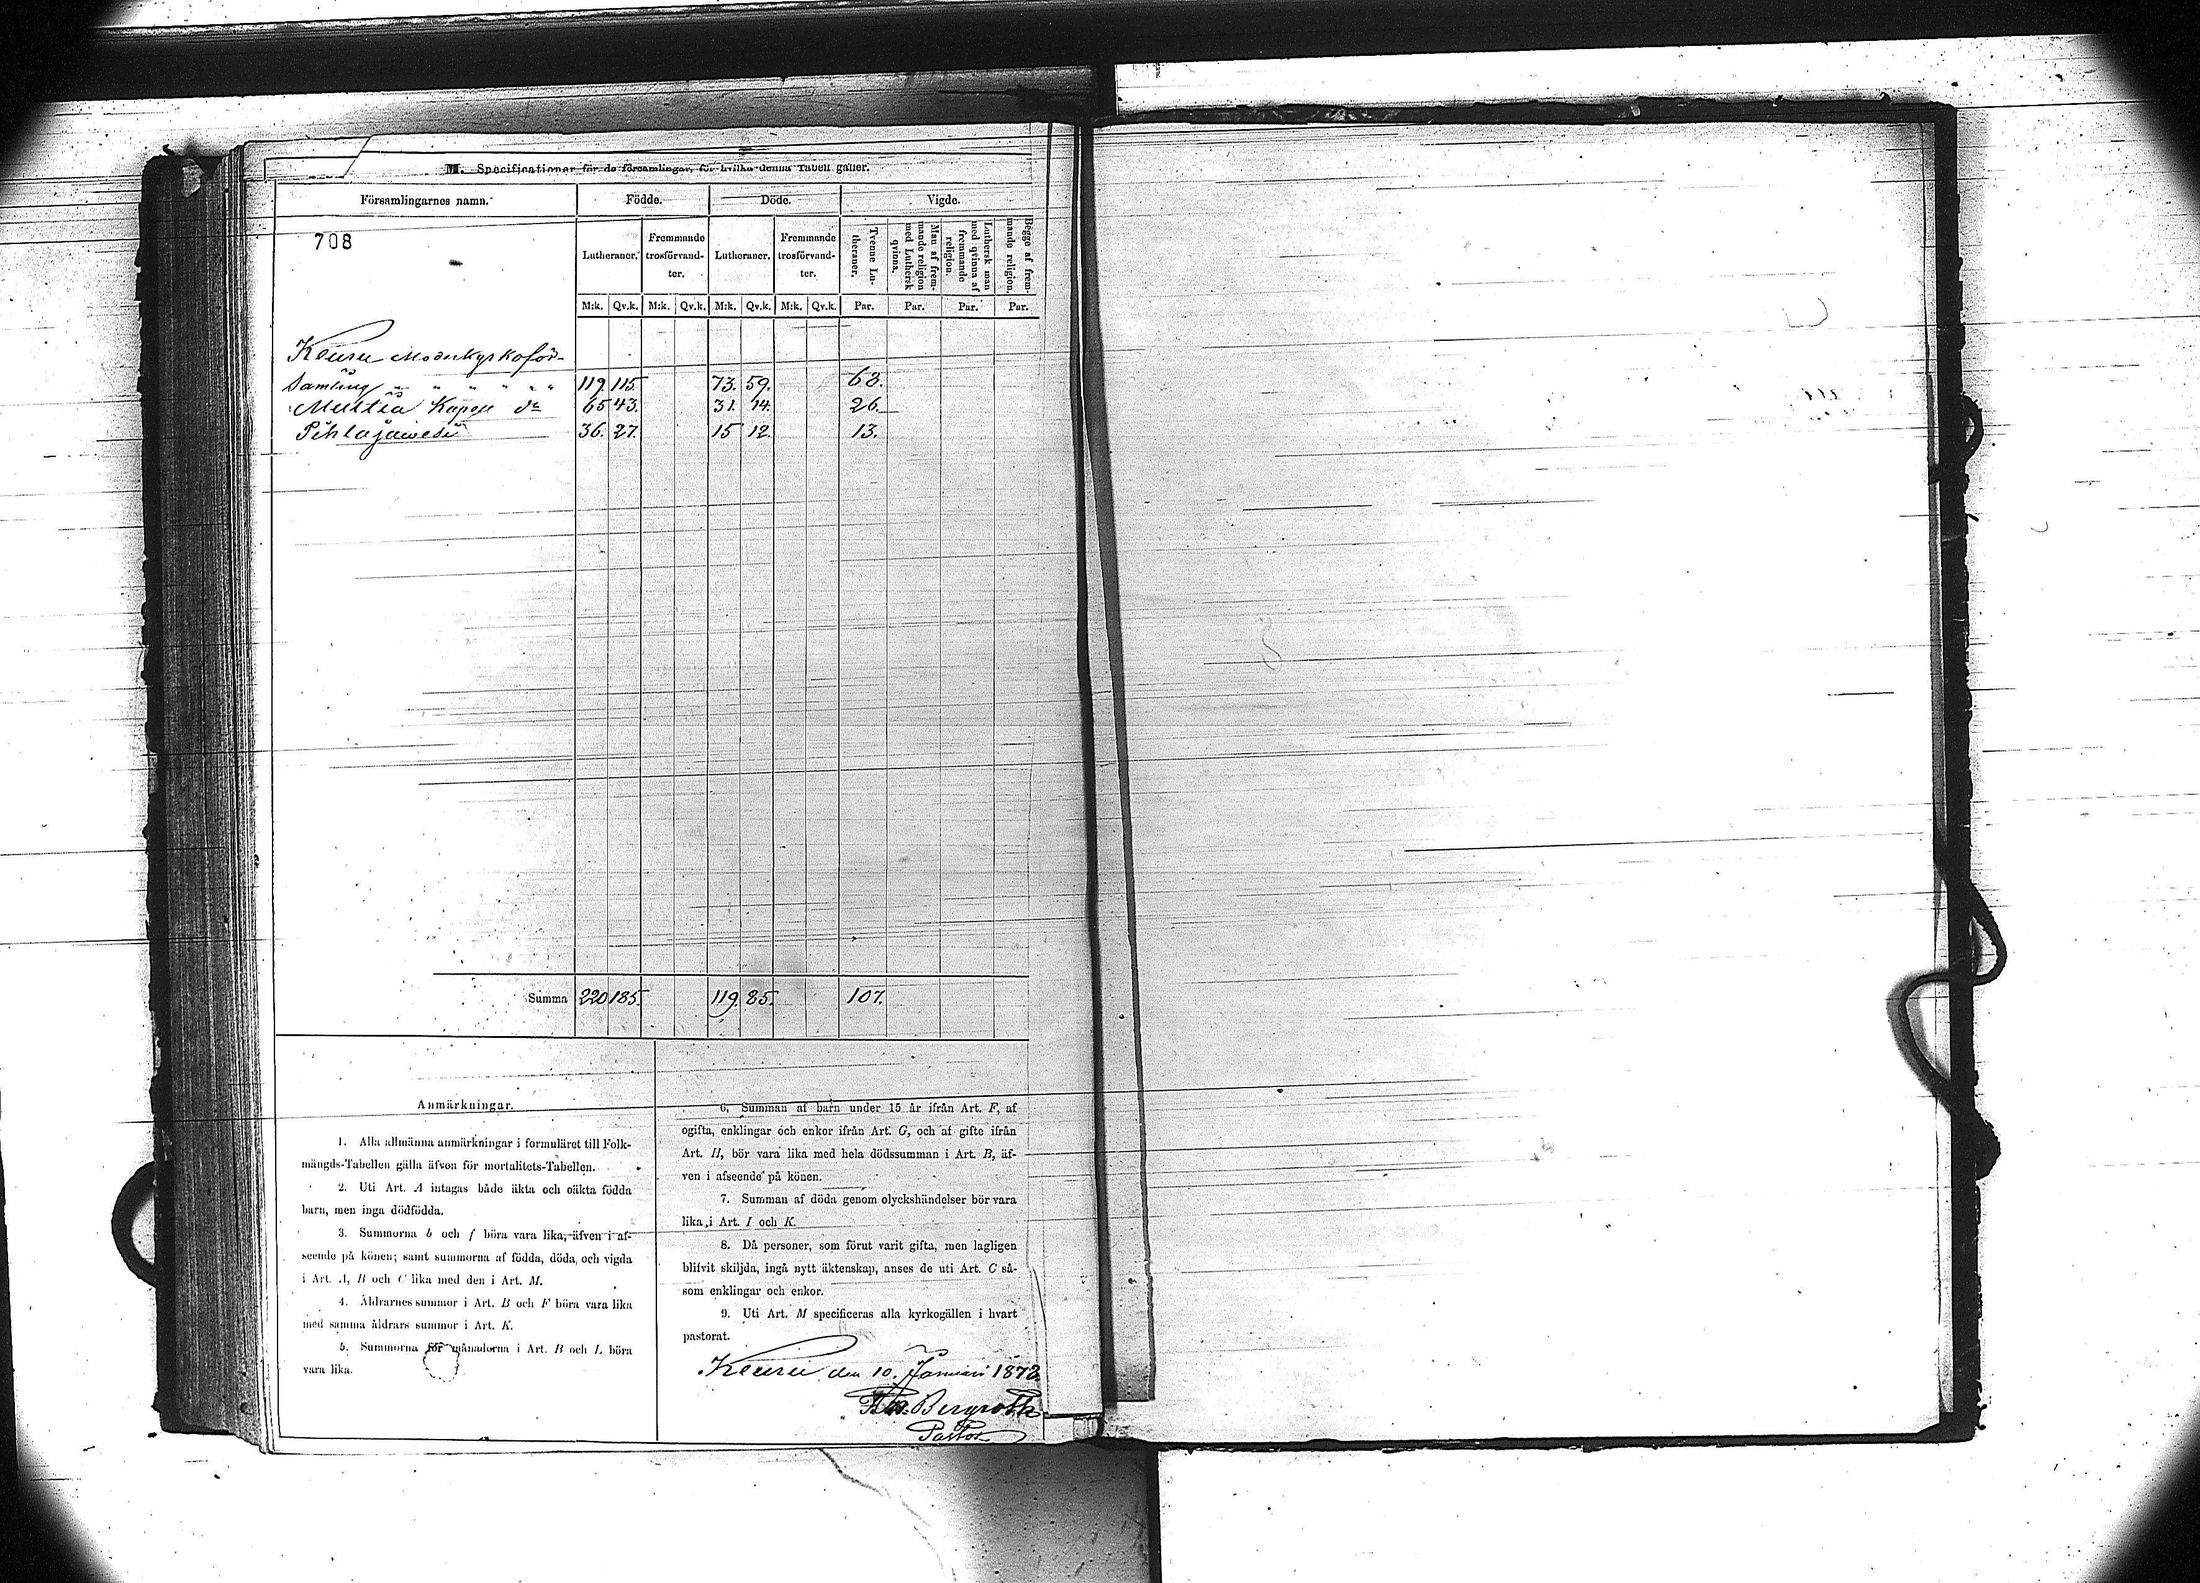 M. Specificationer för de församlingar, för hvilka denna Tabell gäller.
Församlingarnes namn. Födde. Döde. Vigde.
708
Lutheraner. Fremmande trosförvandter. Lutheraner. Fremmande trosförvandter. Tvenne Lutheraner. Man af fremmande religion med Luthersk qvinna. Luthersk man med qvinna af fremmande religion. Begge af fremmande religion.
M:k. Qv.k. M:k. Qv.k. M:k. Qv.k. M:k. Qv.k. Par. Par. Par. Par.
Keuru Moderkyrkoför-
samling " " " " " " 119. 115. 73. 59. 68.
Multia Kapell d:o 65 43. 31. 14. 26.
Pihlajawesi 36. 27. 15 12. 13.
Summa 220 185. 119. 85. 107.
Anmärkningar.
1. Alla allmänna anmärkningar i formuläret till Folk-
mängds-Tabellen gälla äfven för mortalitets-Tabellen.
2. Uti Art. A intagas både äkta och oäkta födda
barn, men inga dödfödda.
3. Summorna b och f böra vara lika, äfven i af-
seende på könen; samt summorna af födda, döda, och vigda
i Art. A, B och C lika med den i Art. M.
4. Åldrarnes summor i Art. B och F böra vara lika
med samma åldrars summor i Art. K.
5. Summorna för månaderna i Art. B och L böra
vara lika.
6. Summan af barn under 15 år ifrån Art. F, af
ogifta, enklingar och enkor ifrån Art. G, och af gifte ifrån
Art. H, bör vara lika med hela dödssumman i Art. B, äf-
ven i afseende på könen.
7. Summan af döda genom olyckshändelser bör vara
lika i Art. I och K.
8. Då personer, som förut varit gifta, men lagligen
blifvit skiljda, ingå nytt äktenskap, anses de uti Art. C så-
som enklingar och enkor.
9. Uti Art. M specificeras alla kyrkogällen i hvart
pastorat.
Keuru den 10. Januari 1872
Bergroth
Pastor